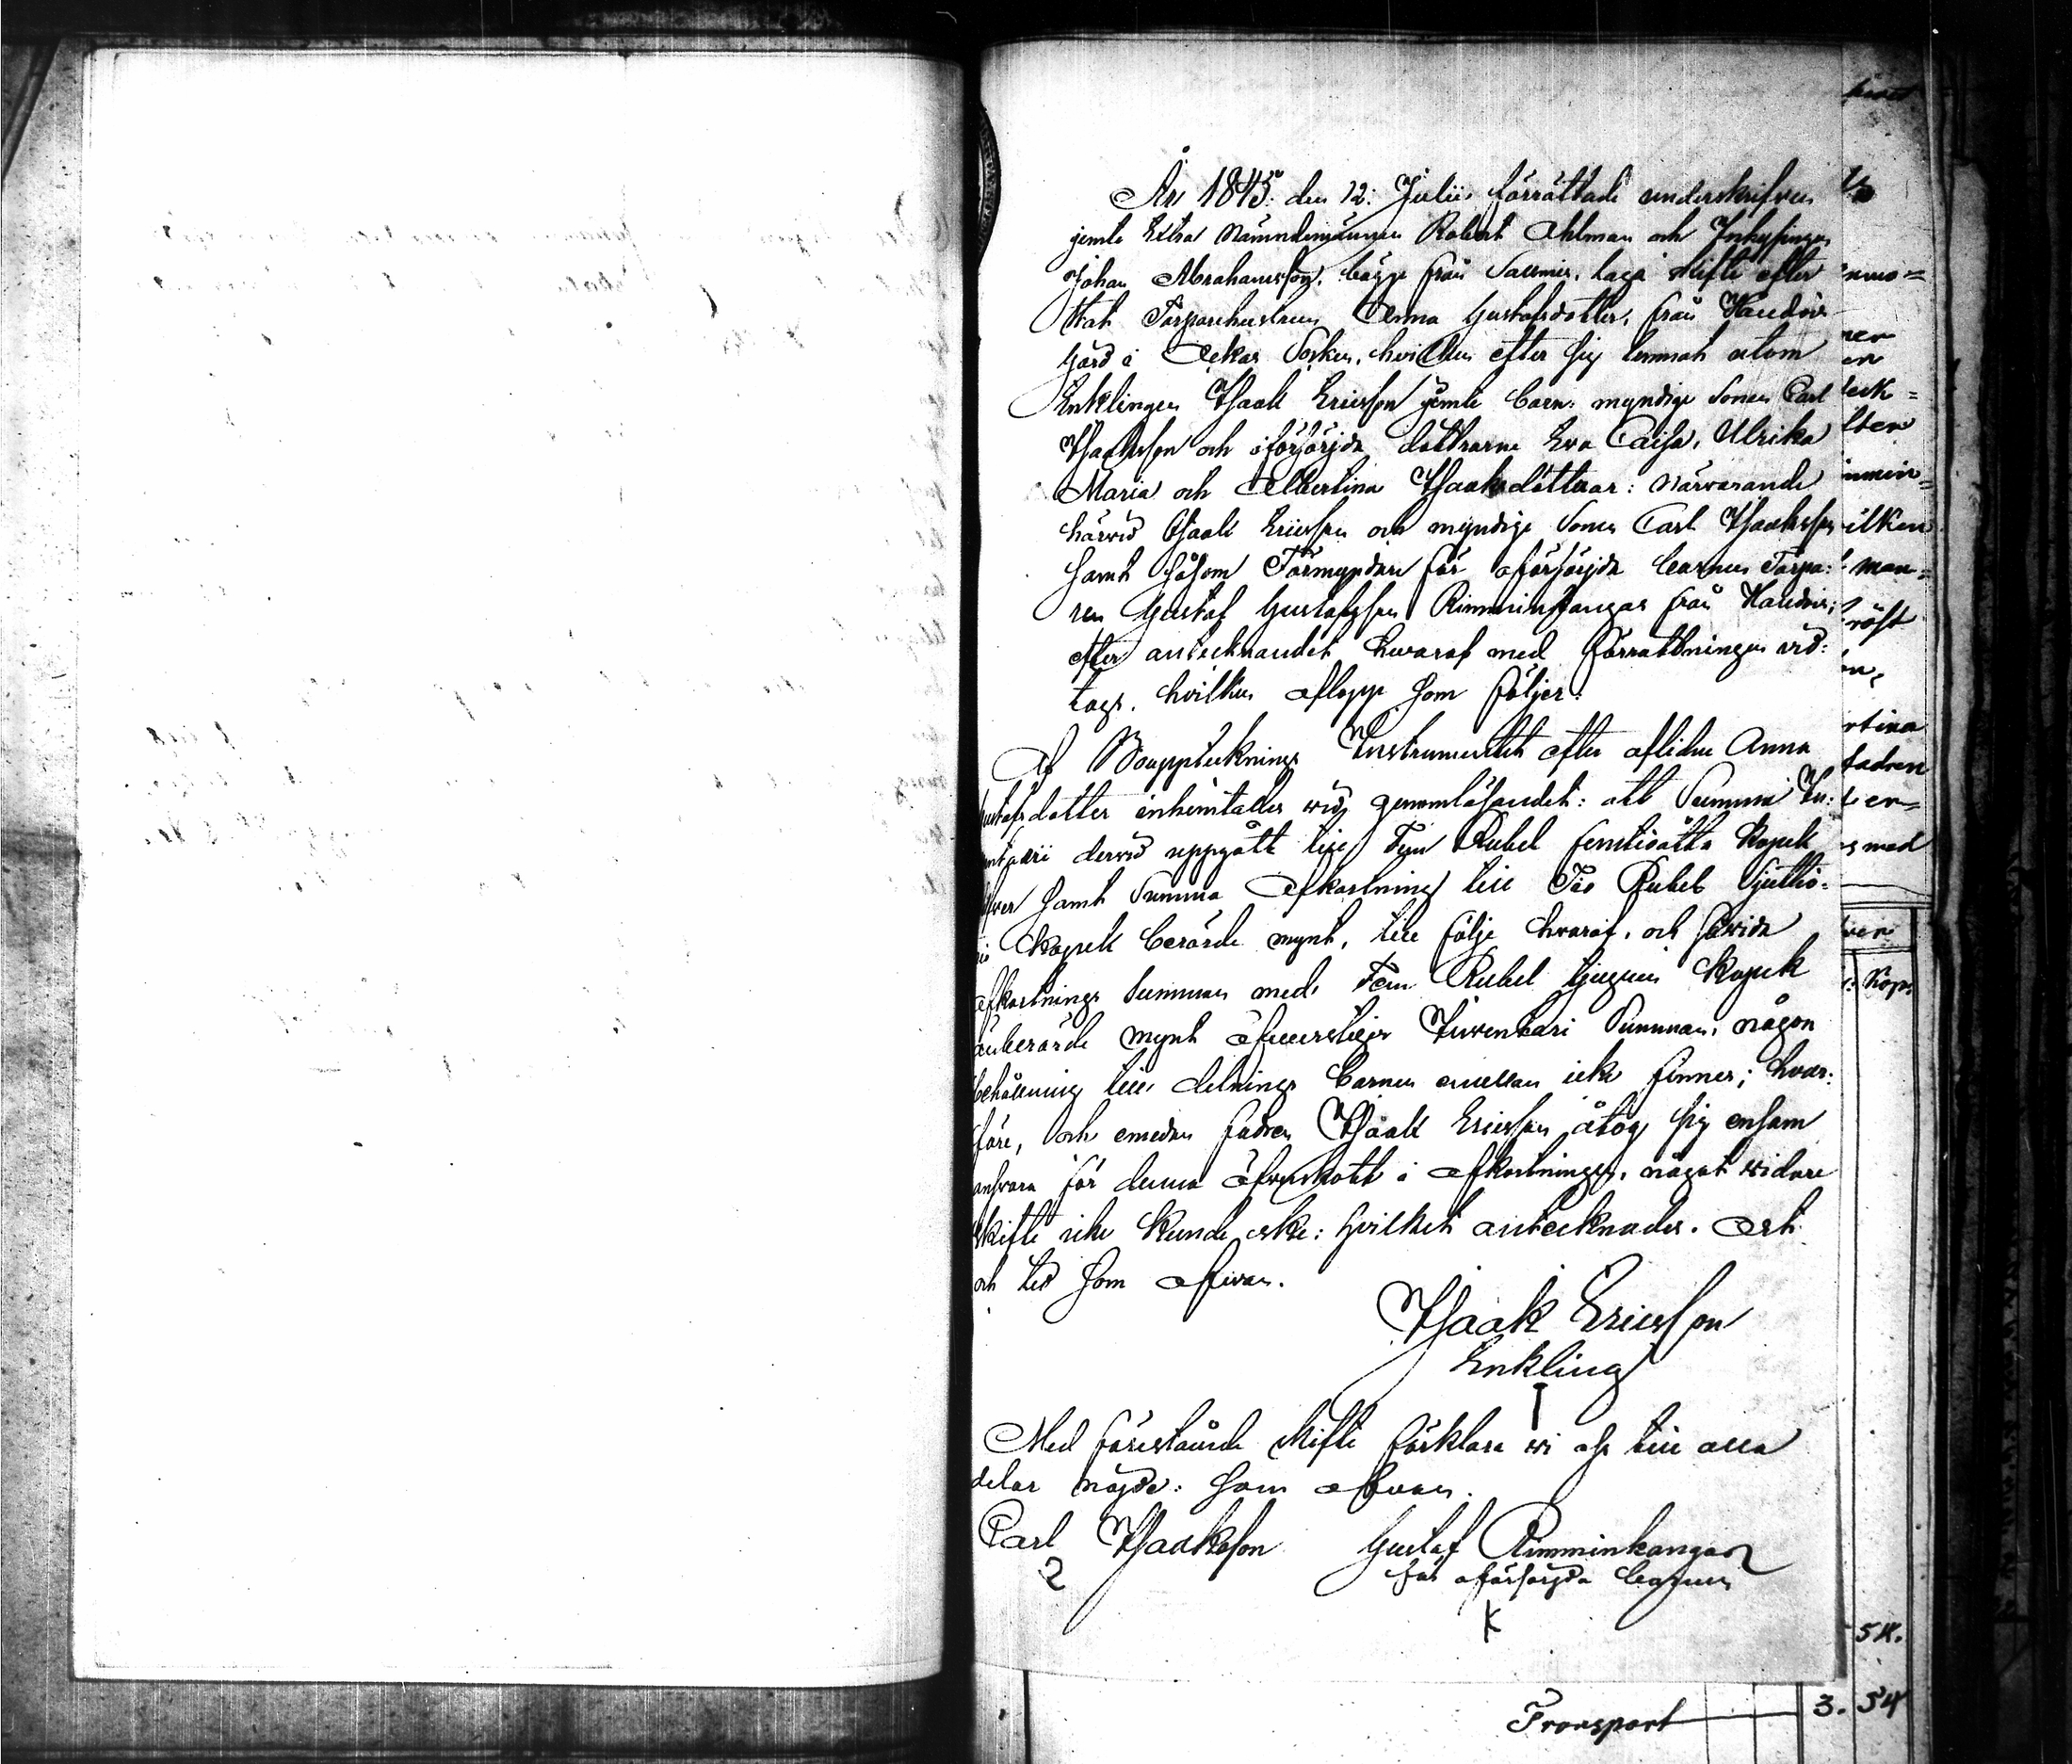 År 1845: den 12: Julii förrättade underskrifven
jemte Extra Nämndemannen Robert Ahlman och
Johan Abrahamsson, bägge från laga skifte efter
Torparehustrun Anna Gustafsdotter, från
gård i Socken, hvilken efter sig lemnat utom
Enklingen Isaak Ericsson jemte barn: myndige Sonen Carl
Isacksson och oförsörjda döttrarne Eva Caisa, Ulrika
Maria och Albertina Isaksdöttrar: närvarande
härvid Isaak Ericsson och myndige Sonen Carl Isaaksson
samt såsom Förmyndare för oförsörjda barnen Torpa:
ren Gustaf Gustafsson Rimminkangas från
efter antecknandet hvaraf med Förrättningen vid:
togs, hvilken aflopp som följer:
Af Bouppteknings Instrumentet efter aflidne Anna
Gustafsdotter inhämtades vid genomläsandet: att Summa In:
ventarii dervid uppgått till Fem Rubel femtioåtta Kopek
Silfver samt Summa Afkortning till Tio Rubel Sjuttio:
Kopek berörde mynt, till följe hvaraf, och såvida
afkortnings Summan med Fem Rubel tjugu Kopek
änberörde mynt öfverstiger Inventarii Summan, någon
behållning till delning barnen emellan icke finnes; hvar:
före, och emedan fadren Isaak Ericsson åtog sig ensam
ansvara för denna öfverskott i afkortningen, något vidare
skifte icke kunde ske: hvilket antecknades. Ort
och tid som ofvan.
Isaak Ericsson
Enkling
Med förestående skifte förklara vi oss till alla
delar nöjde: som ofvan.
Carl Isaaksson Gustaf Rimminkangas
för oförsörjda barnen
Transport 3. 54
54.
Kop: